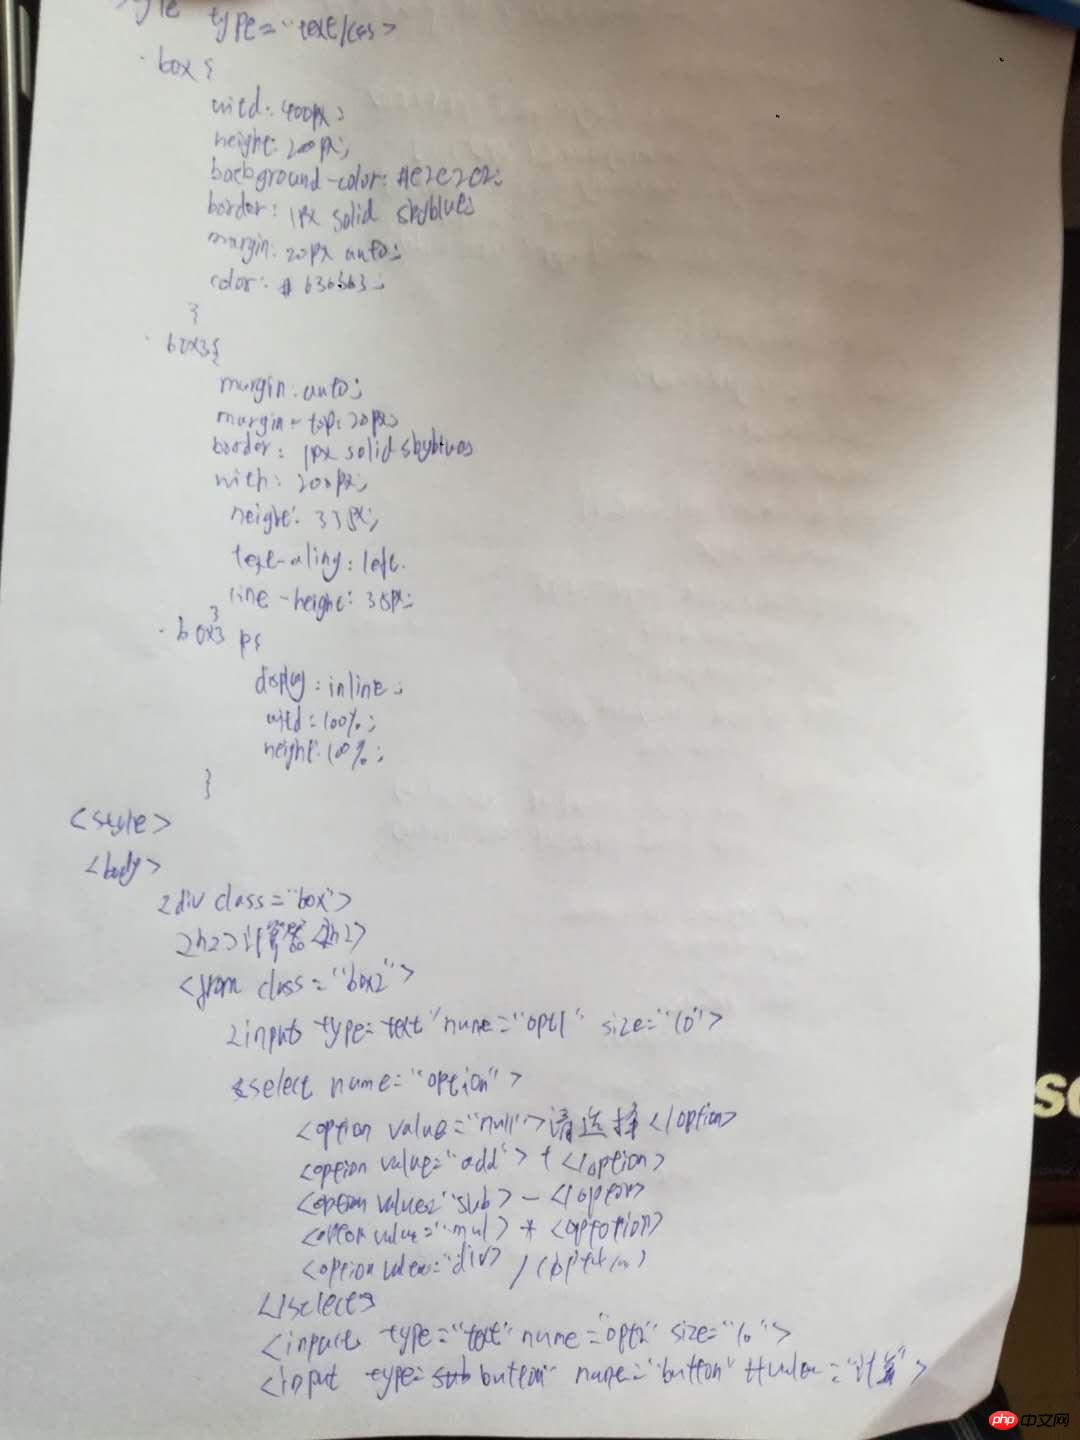 style type="text/css>
.box {
witd: 400px;
height: 200px;
background-color: #e2e2e2;
border: 1px solid skyblue;
margin: 20px auto;
color: # 636363;
}
.box3 {
margin: auto;
margin-top: 20px;
border: 1px solid skyblue;
with: 200px;
height: 35px;
text-aling: left.
line-height: 35px;
}
.box3 p{
display: inline;
witd: 100%;
height: 100%;
}
<style>
<body>
<div class="box">
<h2>计算器<h2>
<from class="box2">
<input type=text" name="opt1" size="10">
<select name="option">
<option value="null">请选择</option>
<option value="add">+</option>
<option value="sub>-</option>
<option value="mul>*<option>
<option value="div> /<option>
</select>
<input type="text" name="opt2" size="10">
<input type= button" name="button" value="计算">
so
php 中文网